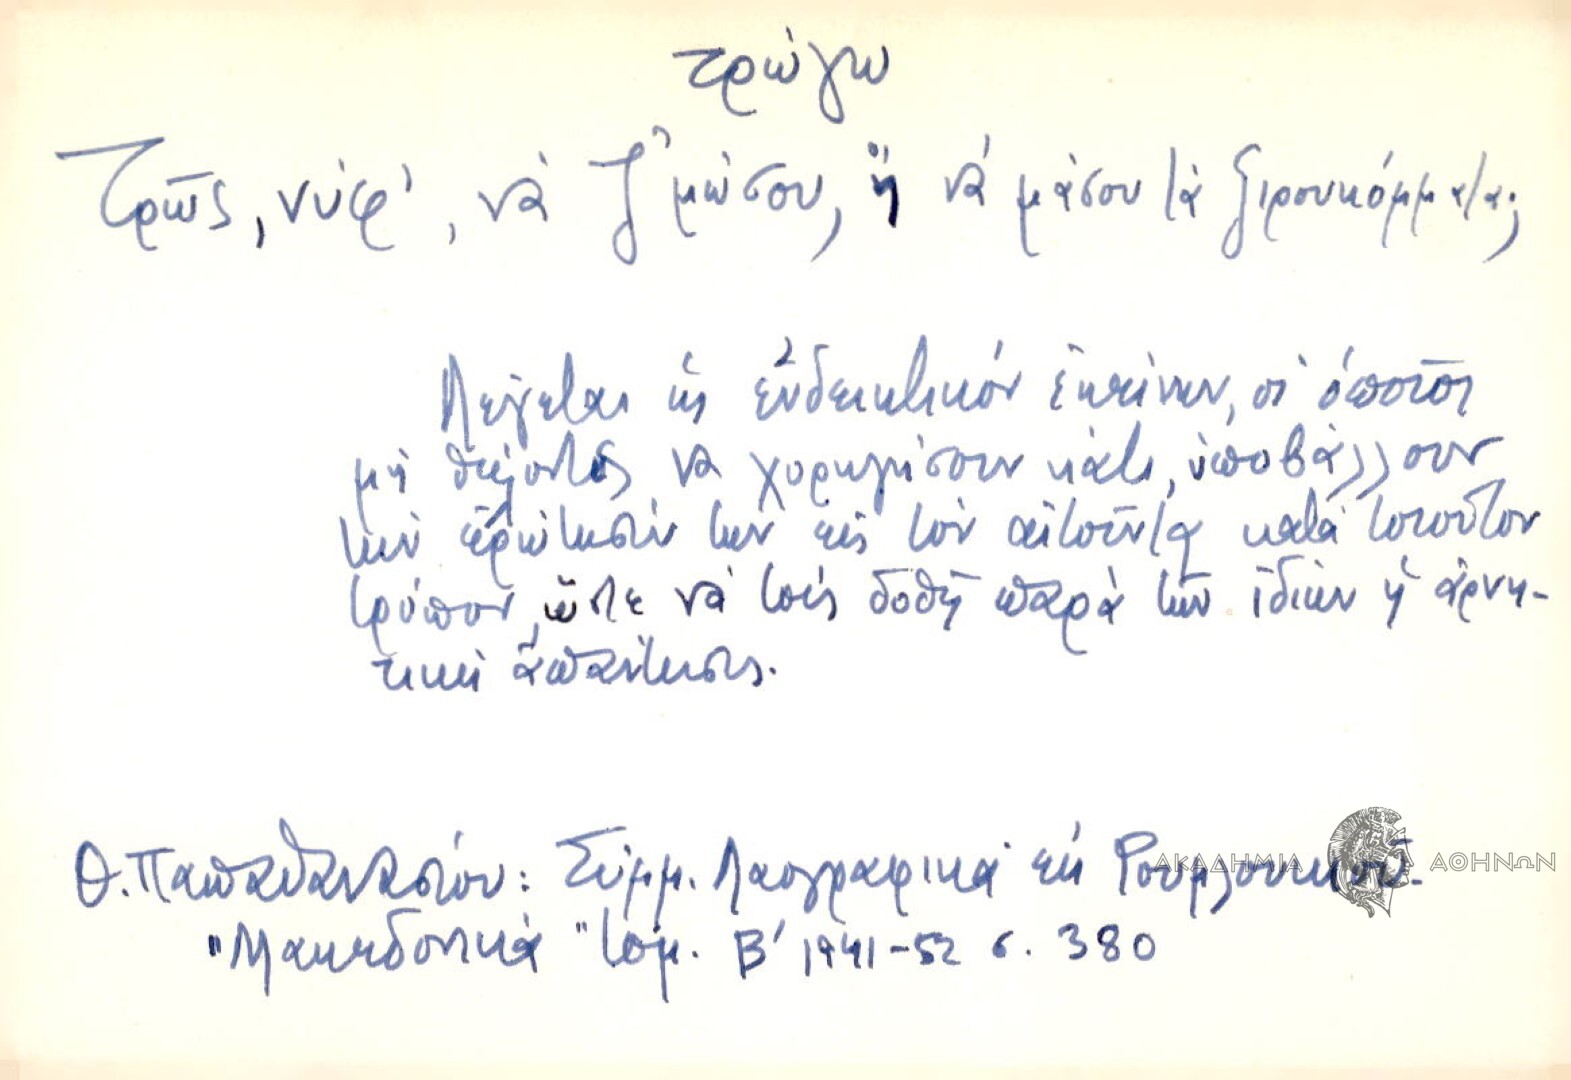 τρώγω
Τρῶς, νύφ', νὰ ζ'μώσου, ἤ νὰ μάσου τὰ ξιρουκόμματα;
Λέγεται ὡς ἐνδεικτικόν ἐκείνων, οἱ ὁποῖοι
μή θέλοντες νὰ χορηγήσουν κάτι, ὑποβάλλουν
τὴν ἐρώτησίν των εἰς τὸν αἰτοῦντα κατὰ τοιοῦτον
τρόπον, ὥστε νὰ τοῖς δοθῇ παρὰ τῶν ἰδίων ἡ ἀρνη-
τικὴ ἀπάντησις.
Θ. Παπαθανασίου: Σύμμ. Λαογραφικά ἐκ Ρουμλουκιοῦ.
"Μακεδονικὰ" τόμ. Β' 1941-52 σ. 380
ΑΚΑΔΗΜΙΑ ΑΘΗΝΩΝ